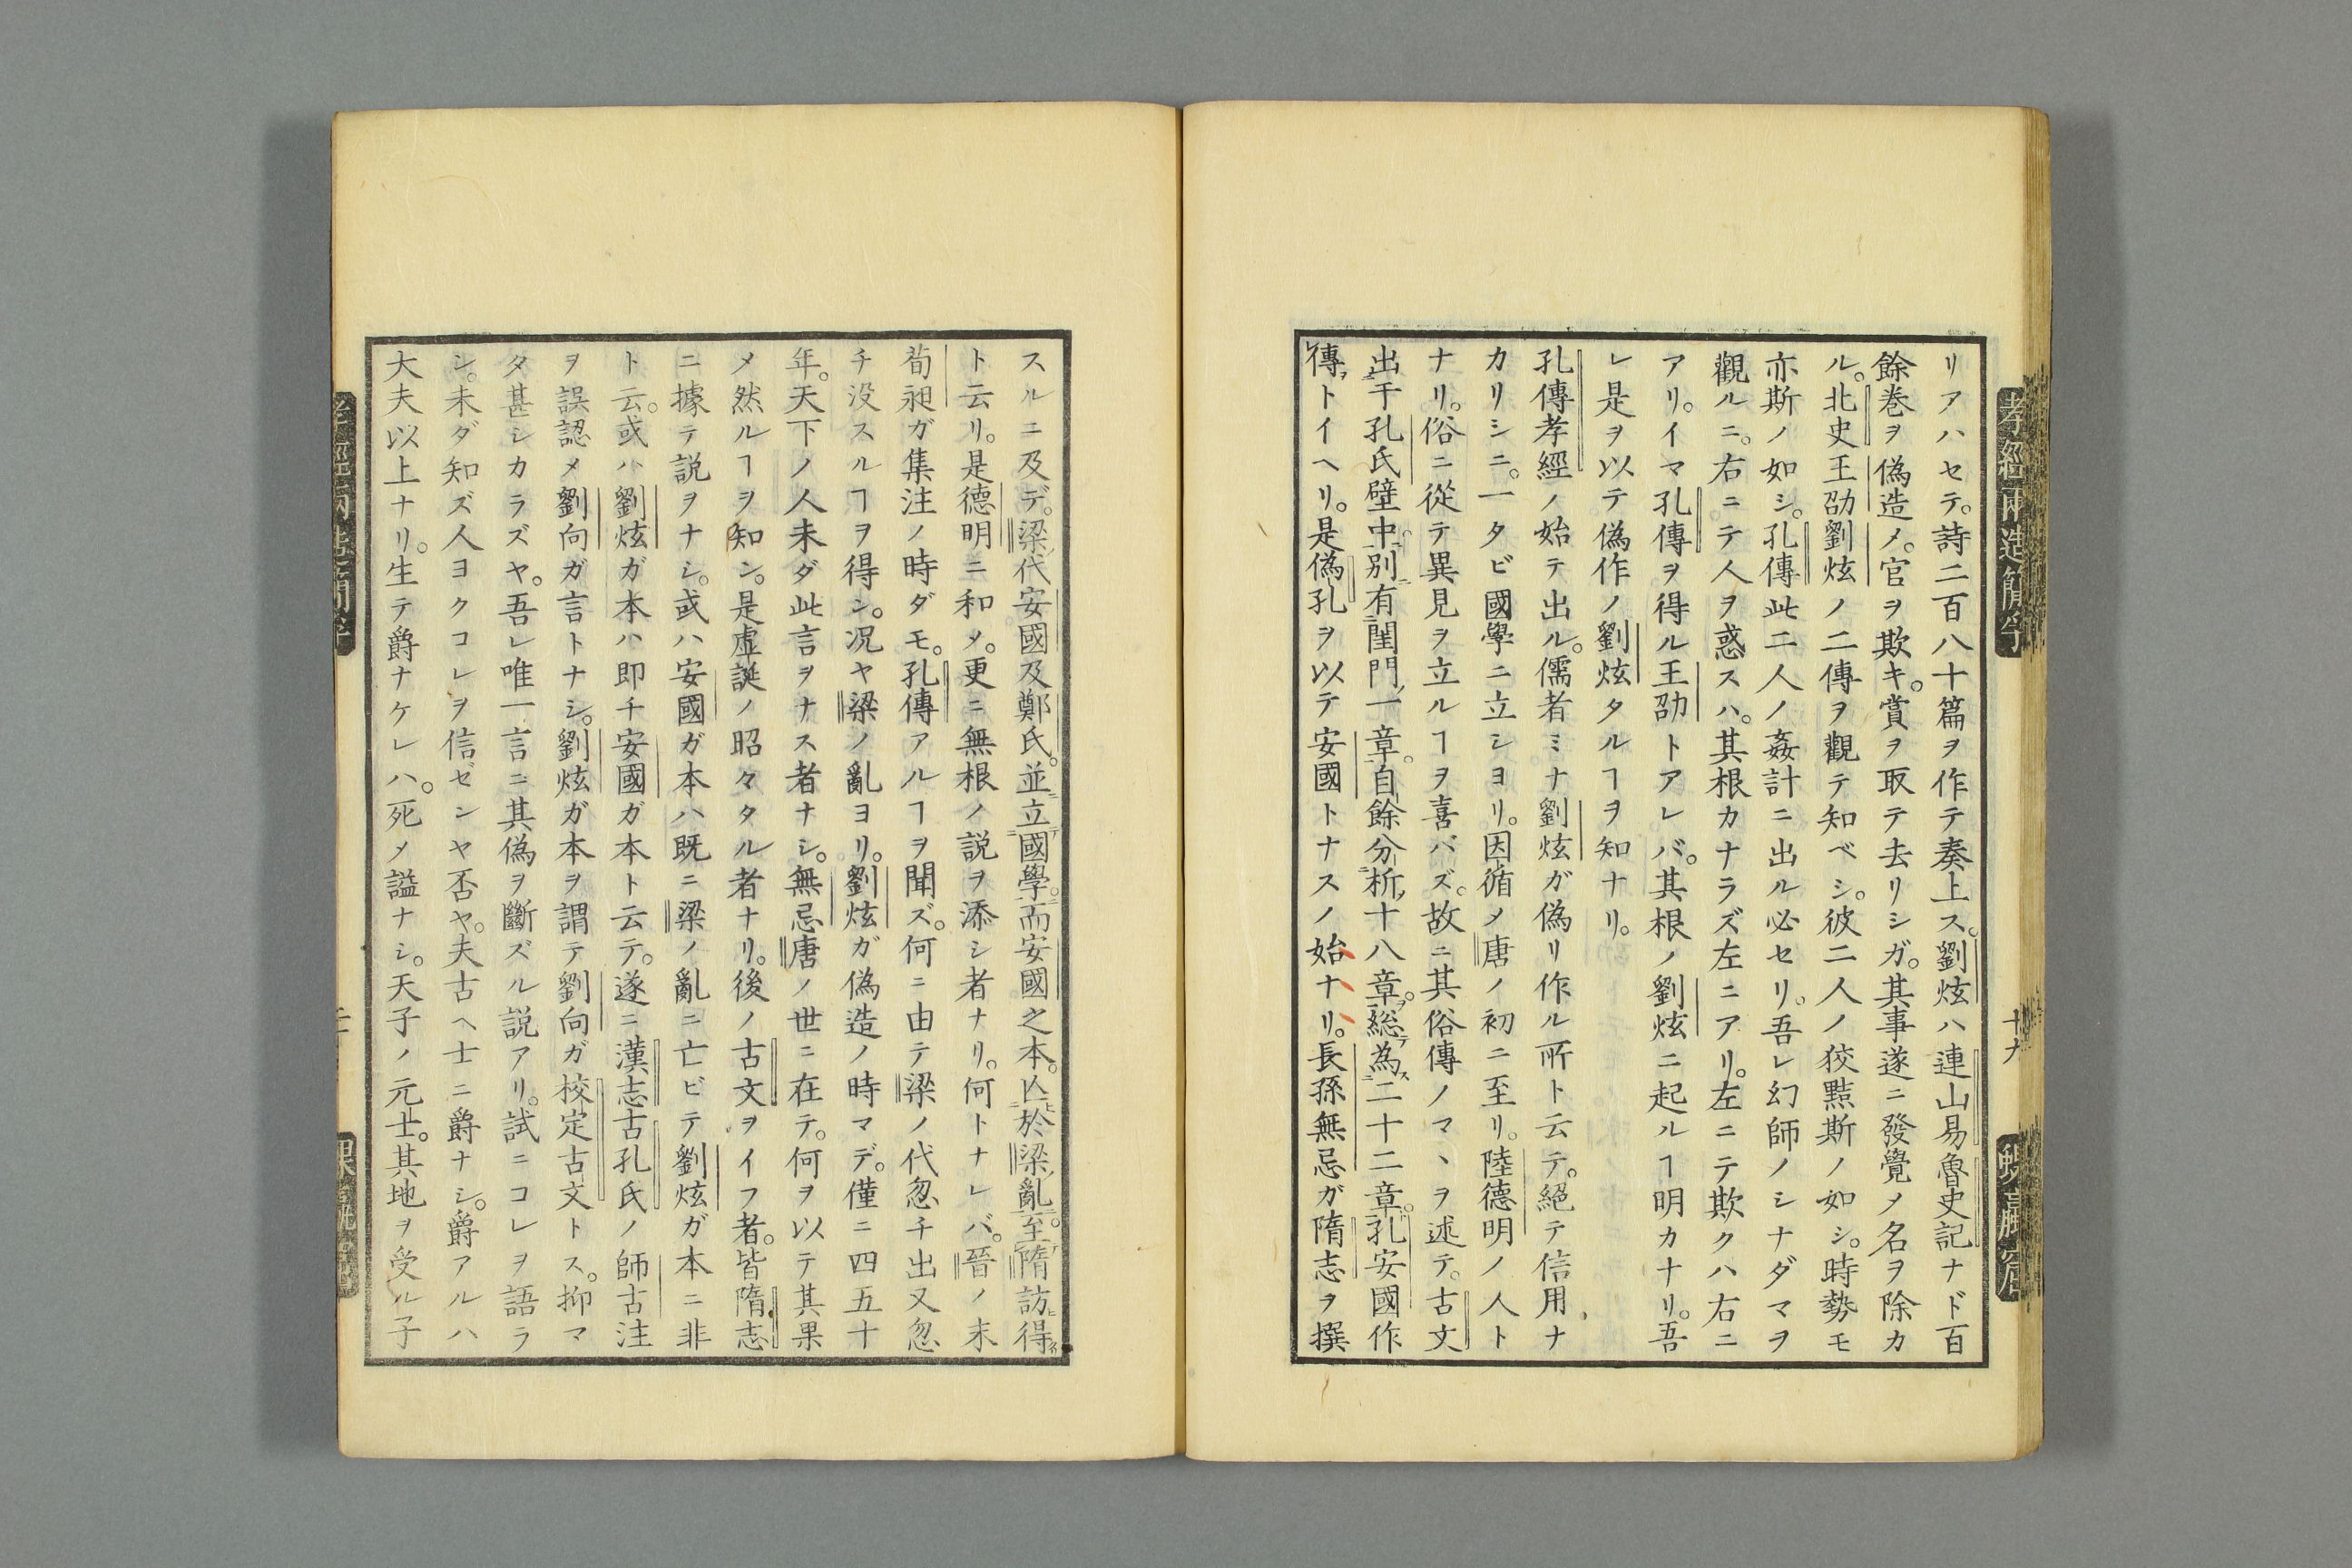 リアハセテ。詩二百八十篇ヲ作テ奏上ス。劉炫ハ連山易魯史記ナド百
餘巻ヲ偽造メ。官ヲ欺キ。賞ヲ取テ去リシガ。其事遂ニ發覺メ名ヲ除カ
ル。北史王劭劉炫ノ二傳ヲ觀テ知ベシ。彼二人ノ狡黠斯ノ如シ。時勢モ
亦斯ノ如シ。孔傳此二人ノ姦計ニ出ル必セリ。吾レ幻師ノシナダマヲ
觀ルニ。右ニテ人ヲ惑スハ。其根カナラズ左ニアリ。左ニテ欺クハ右ニ
アリ。イマ孔傳ヲ得ル王劭トアレバ。其根ノ劉炫ニ起ルヿ明カナリ。吾
レ是ヲ以テ偽作ノ劉炫タルヿヲ知ナリ。
孔傳孝經ノ始テ出ル。儒者ミナ劉炫ガ偽リ作ル所ト云テ。絕テ信用ナ
カリシニ。一タビ國學ニ立シヨリ。因循メ唐ノ初ニ至リ。陸德明ノ人ト
ナリ。俗ニ從テ異見ヲ立ルヿヲ喜バズ。故ニ其俗傳ノマヽヲ述テ。古文
出于孔氏壁中。別有閨門一章。自餘分析十八章。総為二十二章。孔安國作
傳トイヘリ。是偽孔ヲ以テ安國トナスノ始ナリ。長孫無忌ガ隋志ヲ撰
孝經兩造簡孚
十九
スルニ及デ。梁代安國及鄭氏。並立國學。而安國之本。亡於梁亂。至隋訪得
ト云リ。是德明ニ和メ。更ニ無根ノ説ヲ添シ者ナリ。何トナレバ。晉ノ末
荀昶ガ集注ノ時ダモ。孔傳アルヿヲ聞ズ。何ニ由テ梁ノ代忽チ出又忽
チ没スルヿヲ得シ。况ヤ梁ノ亂ヨリ。劉炫ガ偽造ノ時マデ。僅ニ四五十
年。天下ノ人未ダ此言ヲナス者ナシ。無忌唐ノ世ニ在テ。何ヲ以テ其果
メ然ルヿヲ知ン。是虚誕ノ昭々タル者ナリ。後ノ古文ヲイフ者。皆隋志
ニ據テ説ヲナシ。或ハ安國ガ本ハ既ニ梁ノ亂ニ亡ビテ劉炫ガ本ニ非
ト云。或ハ劉炫ガ本ハ即チ安國ガ本ト云テ。遂ニ漢志古孔氏ノ師古注
ヲ誤認メ劉向ガ言トナシ。劉炫ガ本ヲ謂テ劉向ガ校定古文トス。抑マ
タ甚シカラズヤ。吾レ唯一言ニ其偽ヲ斷ズル説アリ。試ニコレヲ語ラ
シ。未ダ知ズ人ヨクコレヲ信ゼンヤ否ヤ。夫古ヘ士ニ爵ナシ。爵アルハ
大夫以上ナリ。生テ爵ナケレハ。死メ謚ナシ。天子ノ元士。其地ヲ受ル子